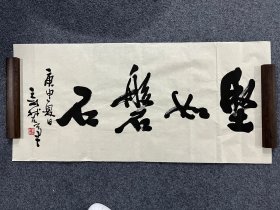 坚如磐石
庚申夏日